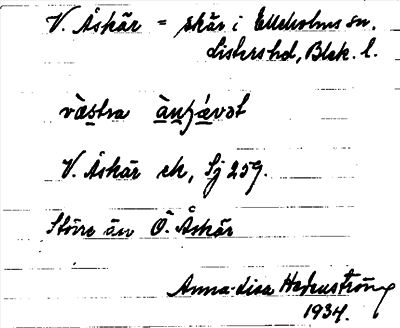 V. Åskär = skär i Elleholms sn.
Listers hd, Blek. l.
västra
V. Åskär ek, Sj 259.
Större än Ö. Åskär
Anna-Lisa
1934.